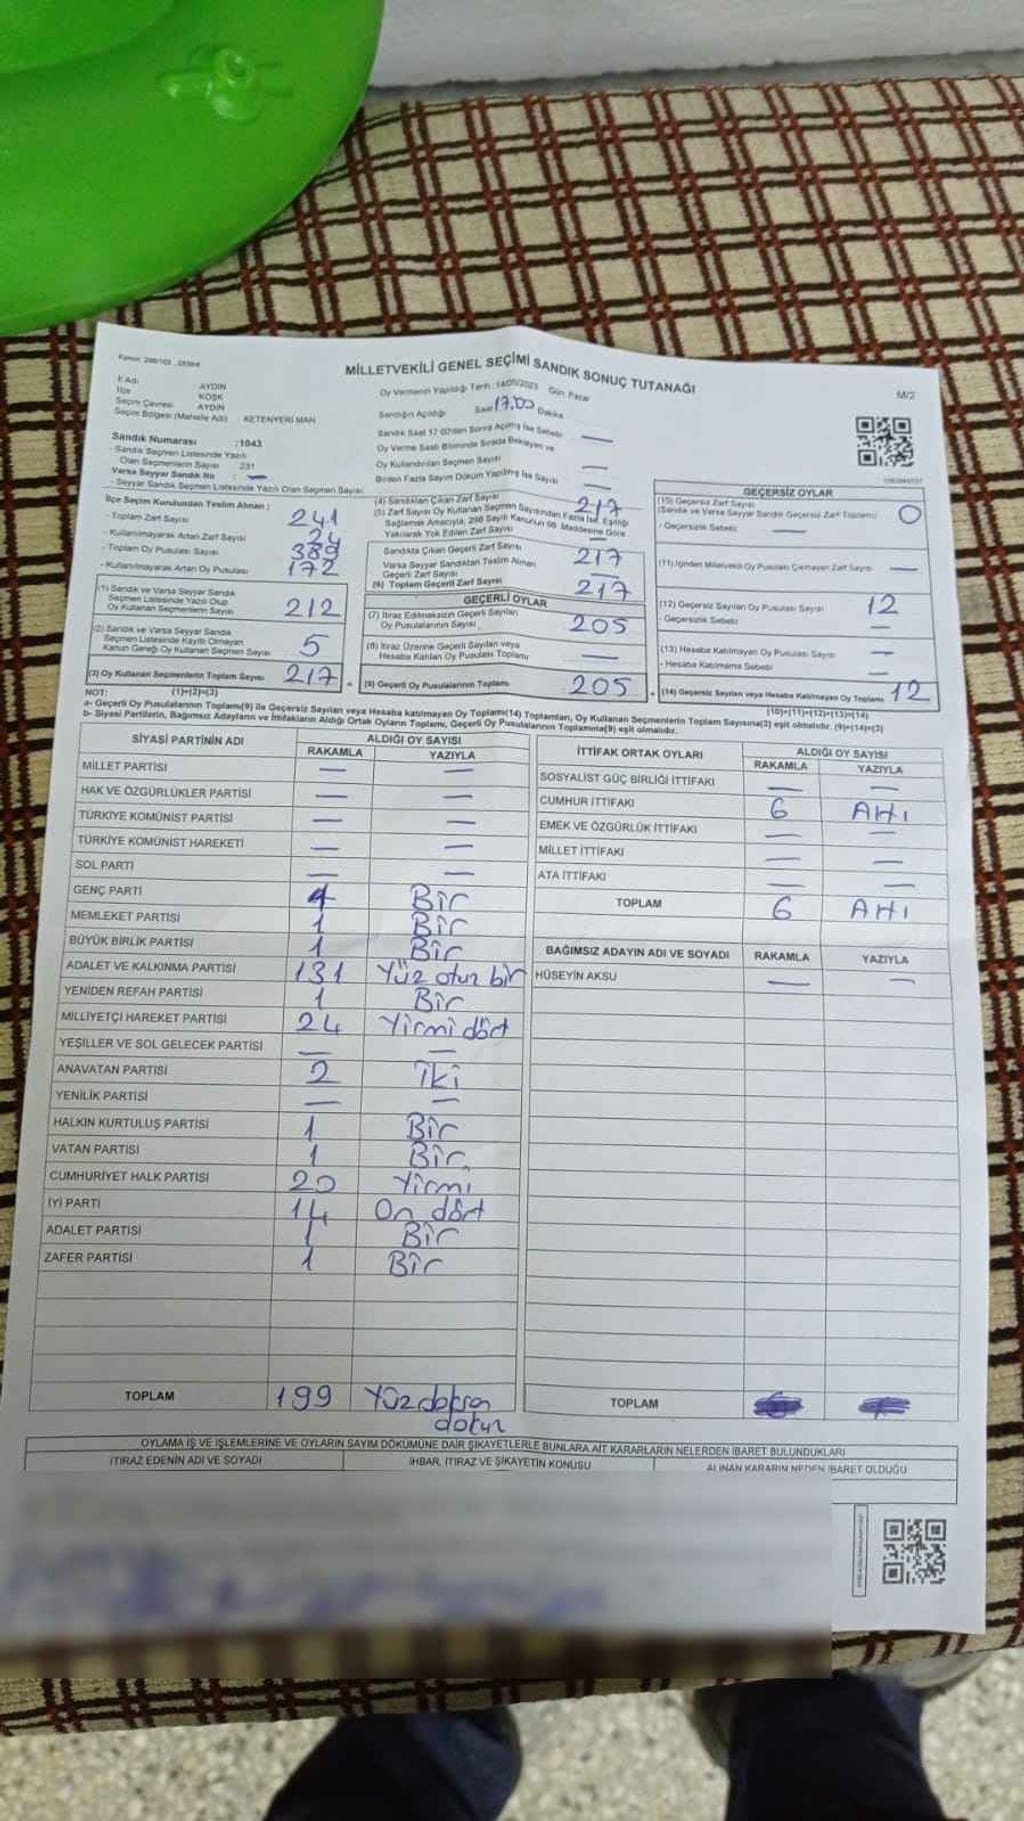 MİLLETVEKİLİ GENEL SEÇİMİ SANDIK SONUÇ TUTANAĞI
M/2
İl Adı AYDIN
İlçe KÖŞK
Seçim Çevresi AYDIN
Seçim Bölgesi (Mahalle Adı) : KETENYERİ MAH
Sandık Numarası :1043
- Sandık Seçmen Listesinde Yazılı
Olan Seçmenlerin Sayısı 231
Varsa Seyyar Sandık No : —
- Seyyar Sandık Seçmen Listesinde Yazılı Olan Seçmen Sayısı:
Oy Vermenin Yapıldığı Tarih : 14/05/2023 Gün Pazar
Sandığın Açıldığı Saat 17.00 Dakika
Sandık Saat 17:00'den Sonra Açılmış İse Sebebi —
Oy Verme Saati Bitiminde Sırada Bekleyen ve
Oy Kullandırılan Seçmen Sayısı —
Birden Fazla Sayım Döküm Yapılmış İse Sayısı —
İlçe Seçim Kurulundan Teslim Alınan :
- Toplam Zarf Sayısı 241
- Kullanılmayarak Artan Zarf Sayısı 24
- Toplam Oy Pusulası Sayısı 389
- Kullanılmayarak Artan Oy Pusulası 172
(1) Sandık ve Varsa Seyyar Sandık
Seçmen Listesinde Yazılı Olup
Oy Kullanan Seçmenlerin Sayısı 212
(2) Sandık ve Varsa Seyyar Sandık
Seçmen Listesinde Kayıtlı Olmayan
Kanun Gereği Oy Kullanan Seçmen Sayısı 5
(3) Oy Kullanan Seçmenlerin Toplam Sayısı 217
(4) Sandıktan Çıkan Zarf Sayısı 217
(5) Zarf Sayısı Oy Kullanan Seçmen Sayısından Fazla İse, Eşitliği
Sağlamak Amacıyla, 298 Sayılı Kanunun 98. Maddesine Göre
Yakılarak Yok Edilen Zarf Sayısı —
Sandıkta Çıkan Geçerli Zarf Sayısı 217
Varsa Seyyar Sandıktan Teslim Alınan
Geçerli Zarf Sayısı —
(6) Toplam Geçerli Zarf Sayısı 217
GEÇERLİ OYLAR
(7) İtiraz Edilmeksizin Geçerli Sayılan
Oy Pusulalarının Sayısı 205
(8) İtiraz Üzerine Geçerli Sayılan veya
Hesaba Katılan Oy Pusulası Toplamı —
(9) Geçerli Oy Pusulalarının Toplamı 205
GEÇERSİZ OYLAR
(10) Geçersiz Zarf Sayısı
(Sandık ve Varsa Seyyar Sandık Geçersiz Zarf Toplamı) 0
- Geçersizlik Sebebi —
(11) İçinden Milletvekili Oy Pusulası Çıkmayan Zarf Sayısı —
(12) Geçersiz Sayılan Oy Pusulası Sayısı 12
- Geçersizlik Sebebi —
(13) Hesaba Katılmayan Oy Pusulası Sayısı —
- Hesaba Katılmama Sebebi —
(14) Geçersiz Sayılan veya Hesaba Katılmayan Oy Toplamı 12
NOT: (1)+(2)=(3)
(10)+(11)+(12)+(13)=(14)
a- Geçerli Oy Pusulalarının Toplamı(9) ile Geçersiz Sayılan veya Hesaba katılmayan Oy Toplamı(14) Toplamları, Oy Kullanan Seçmenlerin Toplam Sayısına(3) eşit olmalıdır. (9)+(14)=(3)
b- Siyasi Partilerin, Bağımsız Adayların ve İttifakların Aldığı Ortak Oyların Toplamı, Geçerli Oy Pusulalarının Toplamına(9) eşit olmalıdır.
SİYASİ PARTİNİN ADI ALDIĞI OY SAYISI
RAKAMLA YAZIYLA
MİLLET PARTİSİ — —
HAK VE ÖZGÜRLÜKLER PARTİSİ — —
TÜRKİYE KOMÜNİST PARTİSİ — —
TÜRKİYE KOMÜNİST HAREKETİ — —
SOL PARTİ — —
GENÇ PARTİ 1 Bir
MEMLEKET PARTİSİ 1 Bir
BÜYÜK BİRLİK PARTİSİ 1 Bir
ADALET VE KALKINMA PARTİSİ 131 Yüz otuz bir
YENİDEN REFAH PARTİSİ 1 Bir
MİLLİYETÇİ HAREKET PARTİSİ 24 Yirmi dört
YEŞİLLER VE SOL GELECEK PARTİSİ — —
ANAVATAN PARTİSİ 2 İki
YENİLİK PARTİSİ — —
HALKIN KURTULUŞ PARTİSİ 1 Bir
VATAN PARTİSİ 1 Bir
CUMHURİYET HALK PARTİSİ 20 Yirmi
İYİ PARTİ 14 On dört
ADALET PARTİSİ 1 Bir
ZAFER PARTİSİ 1 Bir
TOPLAM 199 Yüz doksan
dokuz
İTTİFAK ORTAK OYLARI ALDIĞI OY SAYISI
RAKAMLA YAZIYLA
SOSYALİST GÜÇ BİRLİĞİ İTTİFAKI — —
CUMHUR İTTİFAKI 6 Altı
EMEK VE ÖZGÜRLÜK İTTİFAKI — —
MİLLET İTTİFAKI — —
ATA İTTİFAKI — —
TOPLAM 6 Altı
BAĞIMSIZ ADAYIN ADI VE SOYADI RAKAMLA YAZIYLA
HÜSEYİN AKSU — —
TOPLAM
OYLAMA İŞ VE İŞLEMLERİNE VE OYLARIN SAYIM DÖKÜMÜNE DAİR ŞİKAYETLERLE BUNLARA AİT KARARLARIN NELERDEN İBARET BULUNDUKLARI
İTİRAZ EDENİN ADI VE SOYADI İHBAR, İTİRAZ VE ŞİKAYETİN KONUSU ALINAN KARARIN NEDEN İBARET OLDUĞU